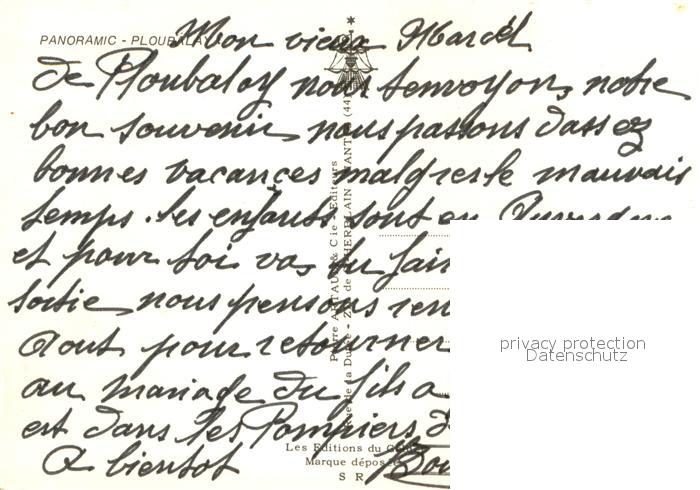 PANORAMIC - PLOUBALAY
Mon vieux Marcel
de Ploubalay nous tenvoyons notre
bon souvenir nous passons dassez
bonnes vacances malgres le mauvais
temps. les enfants sont en
et pour toi vas tu fair
sortie nous pensons ren
Aout pour retourner
au mariage du fils a
est dans les Pompiers d
A bientot Bon
Pierre ARTAUD & Cie - Editeurs
Rue de la Durée - Z.I. de ST HERBLAIN NANTES (44)
Les Editions du G
Marque déposée
S R
privacy protection
Datenschutz